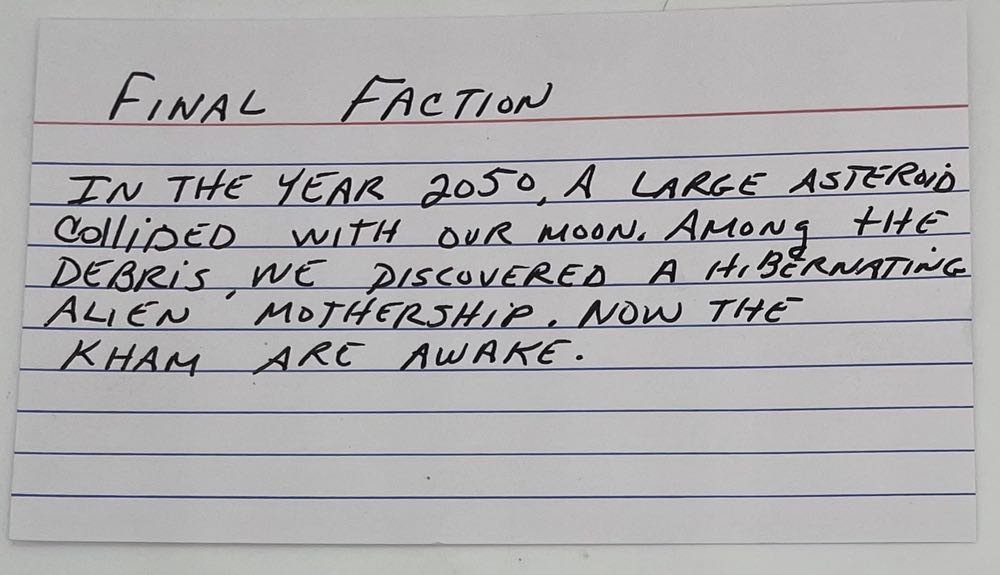 FINAL FACTION
IN THE YEAR 2050, A LARGE ASTEROID
COLLIDED WITH OUR MOON. AMONG THE
DEBRIS, WE DISCOVERED A HIBERNATING
ALIEN MOTHERSHIP. NOW THE
KHAM ARE AWAKE.